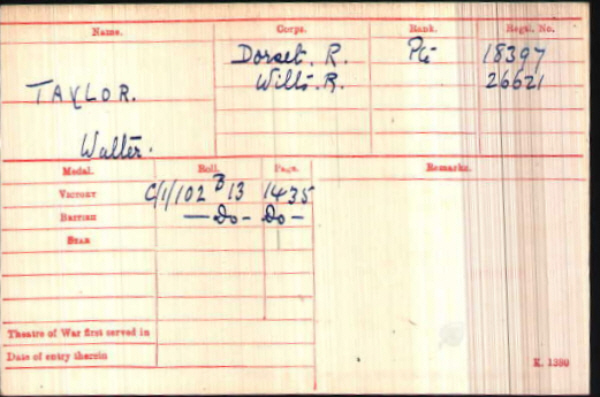 Name. Corps. Rank. Regtl. No.
Dorset. R. Pte 18397
TAYLOR. Wilts. R. 26621
Walter.
Medal. Roll. Page. Remarks.
VICTORY C/1/102 B13 1435
BRITISH — Do - Do -
STAR
Theatre of War first served in
Date of entry therein
K. 1380